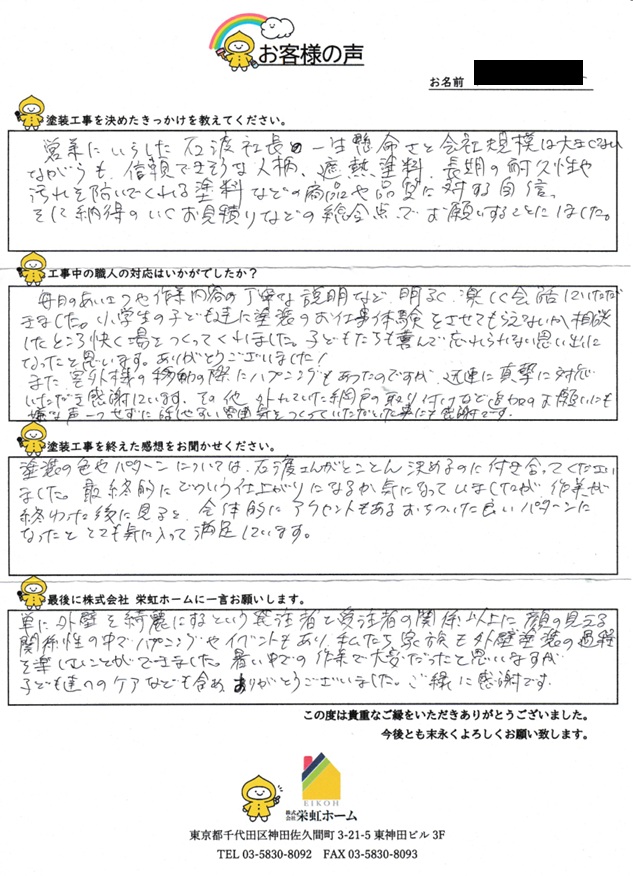 お客様の声
お名前
塗装工事を決めたきっかけを教えてください。
営業にいらした石渡社長の一生懸命さと会社規模は大きくない
ながらも、信頼できそうな人柄、遮熱塗料、長期の耐久性や
汚れを防いでくれる塗料などの商品や品質に対する自信、
そして納得のいくお見積りなどの総合点でお願いすることにしました。
工事中の職人の対応はいかがでしたか？
毎日のあいさつや作業内容の丁寧な説明など、明るく楽しく会話していただ
きました。小学生の子ども達に塗装のお仕事体験をさせてもらえないか相談
したところ快く場をつくってくれました。子どもたちも喜んで忘れられない思い出に
なったと思います。ありがとうございました！
また室外機の移動の際にハプニングもあったのですが、迅速に真摯に対応
いただき感謝しています。その他、外れていた網戸の取り付けなど追加のお願いにも
嫌な声一つせずに 雰囲気をつくっていただいた事にも感謝です。
塗装工事を終えた感想をお聞かせください。
塗装の色やパターンについては、石渡さんがとことん決めるのに付き合ってくださり
ました。最終的にどういう仕上がりになるか気になっていましたが、作業が
終わった後に見ると、全体的にアクセントもあるおちついた良いパターンに
なったととても気に入って満足しています。
最後に株式会社 栄虹ホームに一言お願いします。
単に外壁を綺麗にするという発注者と受注者の関係以上に顔の見える
関係性の中でハプニングやイベントもあり、私たち家族も外壁塗装の過程
を楽しむことができました。暑い中での作業で大変だったと思いますが
子ども達へのケアなども含め、ありがとうございました。ご縁に感謝です。
この度は貴重なご縁をいただきありがとうございました。
今後とも末永くよろしくお願い致します。
EIKOH
株式会社 栄虹ホーム
東京都千代田区神田佐久間町 3-21-5 東神田ビル 3F
TEL 03-5830-8092 FAX 03-5830-8093